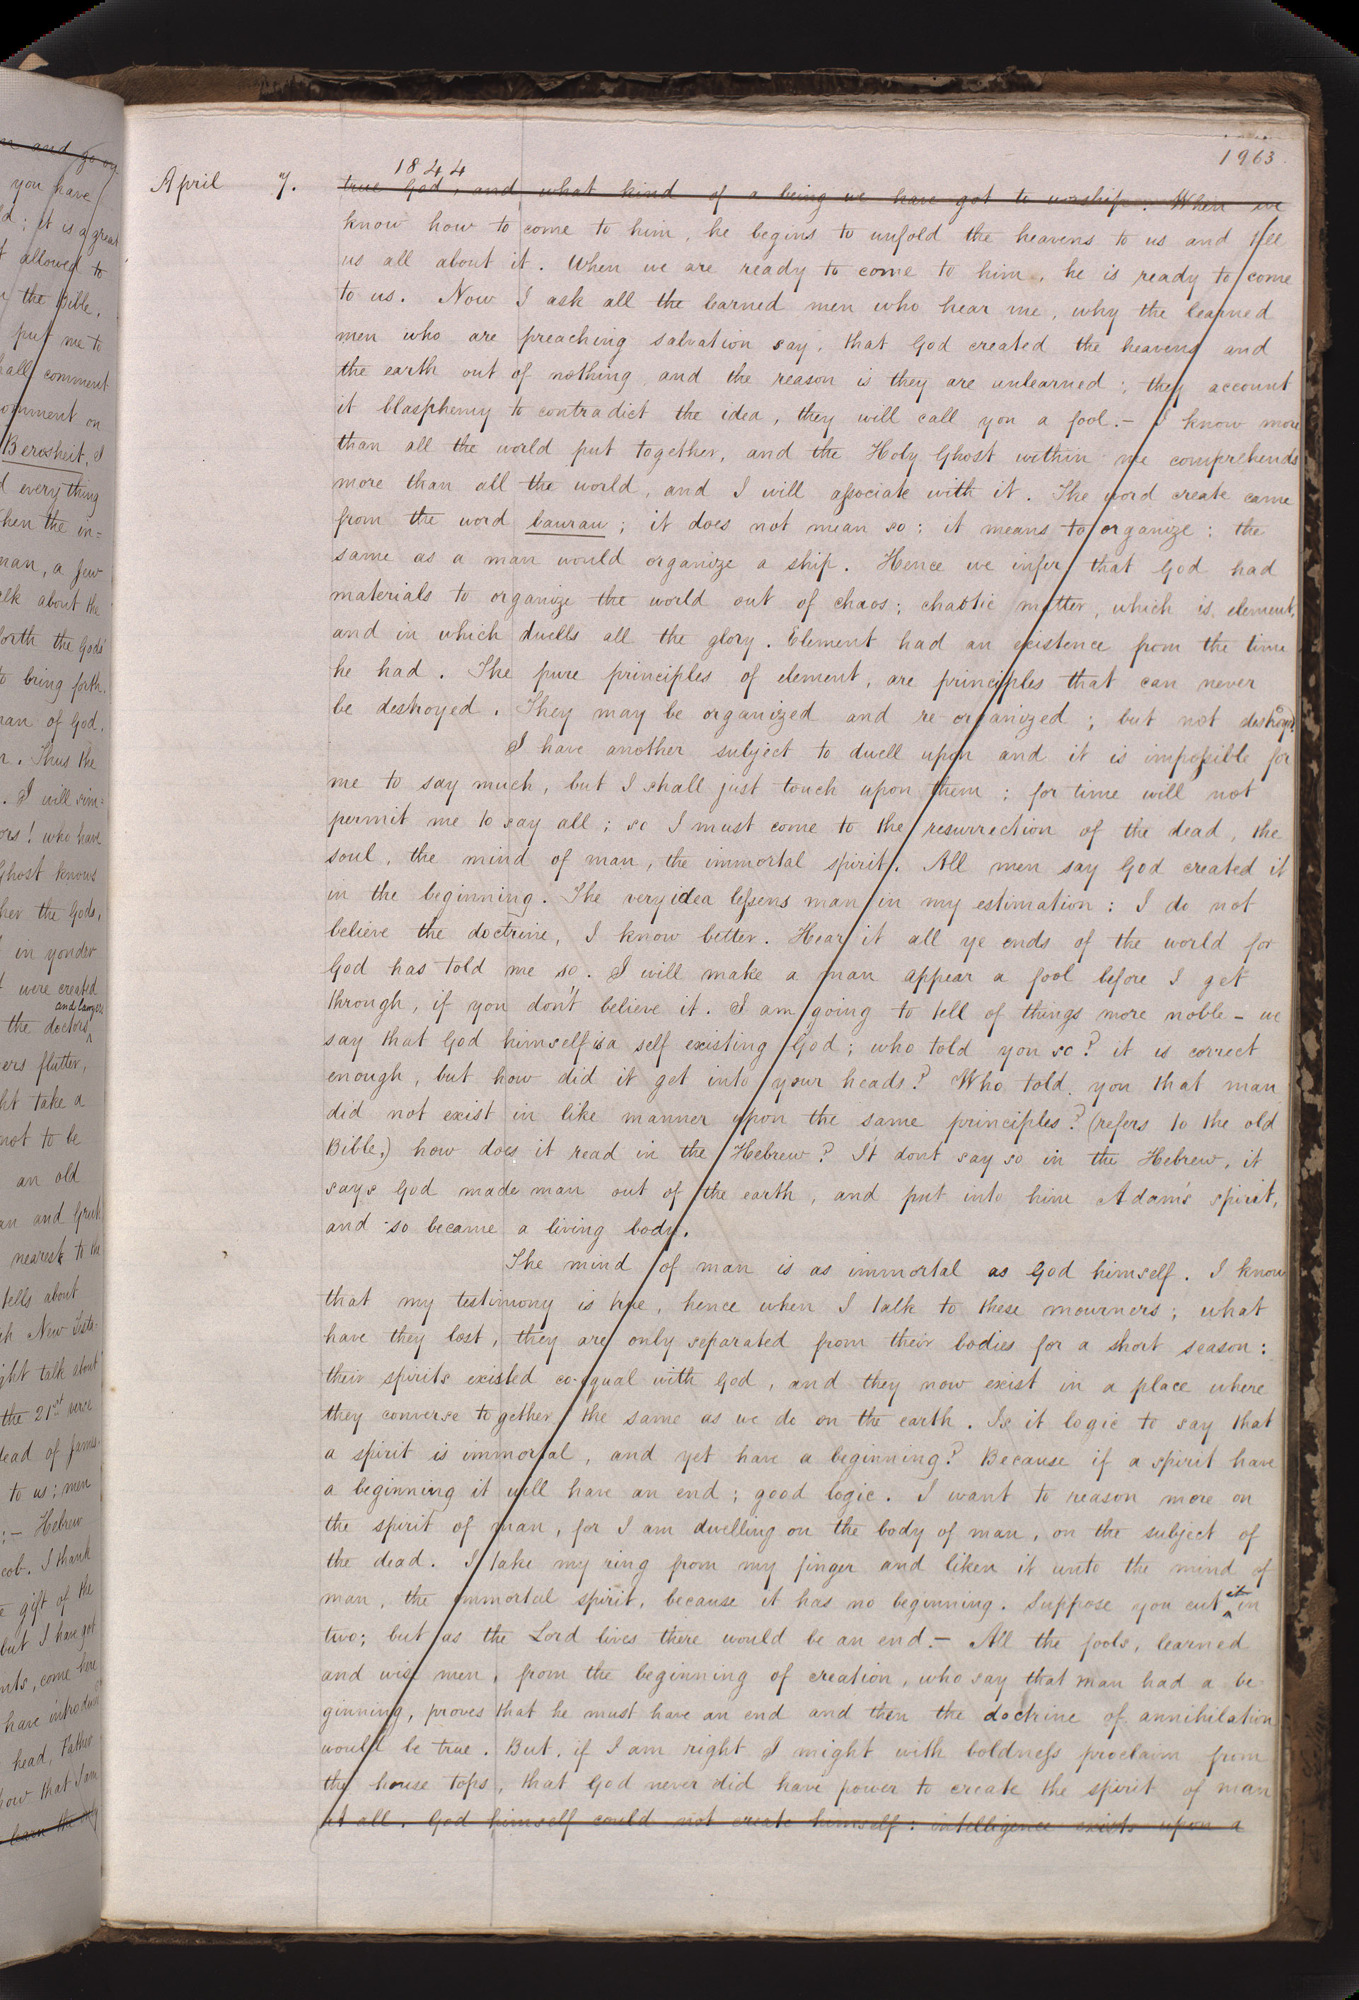 n and go on
you have
ld; it is a great
t allowed to
y the Bible,
put me to
hall comment
comment on
Berosheit, I
d everything
hen the in=
man, a few
alk about the
forth the Gods
to bring forth.
man of God.
n. Thus the
. I will sim=
ors! who have
Ghost knows
her the Gods,
in yonder
t were created
and lawyers
the doctors ^
ers flutter,
ht take a
not to be
an old
an and Greek
nearest to the
tells about
ch New Testa-
ight talk about
the 21st verse
tead of James.
to us; men
;— Hebrew
cob. I thank
e gift of the
but I have got
nts, come here
have introduced
head, Father
how that I am
learn the
1963.
1844
April 7. true God, and what kind of a being we have got to worship. When we
know how to come to him, he begins to unfold the heavens to us and tell
us all about it. When we are ready to come to him, he is ready to come
to us. Now I ask all the learned men who hear me, why the learned
men who are preaching salvation say, that God created the heavens and
the earth out of nothing and the reason is they are unlearned; they account
it blasphemy to contradict the idea, they will call you a fool.— I know more
than all the world put together, and the Holy Ghost within me comprehends
more than all the world, and I will associate with it. The word create came
from the word baurau; it does not mean so: it means to organize: the
same as a man would organize a ship. Hence we infer that God had
materials to organize the world out of chaos; chaotic matter, which is element,
and in which dwells all the glory. Element had an existence from the time
he had. The pure principles of element, are principles that can never
be destroyed. They may be organized and re-organized; but not destroyed.
I have another subject to dwell upon and it is impossible for
me to say much, but I shall just touch upon them; for time will not
permit me to say all; so I must come to the resurrection of the dead, the
soul, the mind of man, the immortal spirit. All men say God created it
in the beginning. The very idea lessens man in my estimation: I do not
believe the doctrine, I know better. Hear it all ye ends of the world for
God has told me so. I will make a man appear a fool before I get
through, if you don't believe it. I am going to tell of things more noble— we
say that God himself is a self existing God; who told you so? it is correct
enough, but how did it get into your heads? Who told you that man
did not exist in like manner upon the same principles? (refers to the old
Bible.) how does it read in the Hebrew? It dont say so in the Hebrew, it
says God made man out of the earth, and put into him Adam's spirit,
and so became a living body.
The mind of man is as immortal as God himself. I know
that my testimony is true, hence when I talk to these mourners; what
have they lost, they are only separated from their bodies for a short season:
their spirits existed co-equal with God, and they now exist in a place where
they converse together the same as we do on the earth. Is it logic to say that
a spirit is immortal, and yet have a beginning? Because if a spirit have
a beginning it will have an end; good logic. I want to reason more on
the spirit of man, for I am dwelling on the body of man, on the subject of
the dead. I take my ring from my finger and liken it unto the mind of
man, the immortal spirit, because it has no beginning. Suppose you cut ^it in
two; but as the Lord lives there would be an end.— All the fools, learned
and wise men, from the beginning of creation, who say that man had a be
ginning, proves that he must have an end and then the doctrine of annihilation
would be true. But, if I am right I might with boldness proclaim from
the house tops, that God never did have power to create the spirit of man
at all. God himself could not create himself: intelligence exists upon a